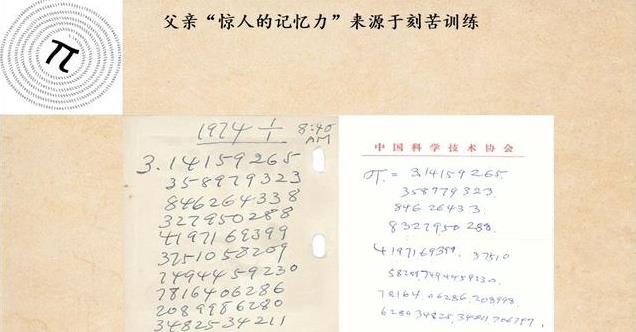 父亲“惊人的记忆力”来源于刻苦训练
π
1974 1/1 8:40 AM
3.14159265
358979323
846264338
327950288
4197169399
3751058209
7494459230
7816406286
2089986280
3482534211
中国科学技术协会
π = 3.14159265
358979323
84626433
8327950288.
4197169399. 37510
582097494459230.
78164.06286.208998
6280.34825.34211706797